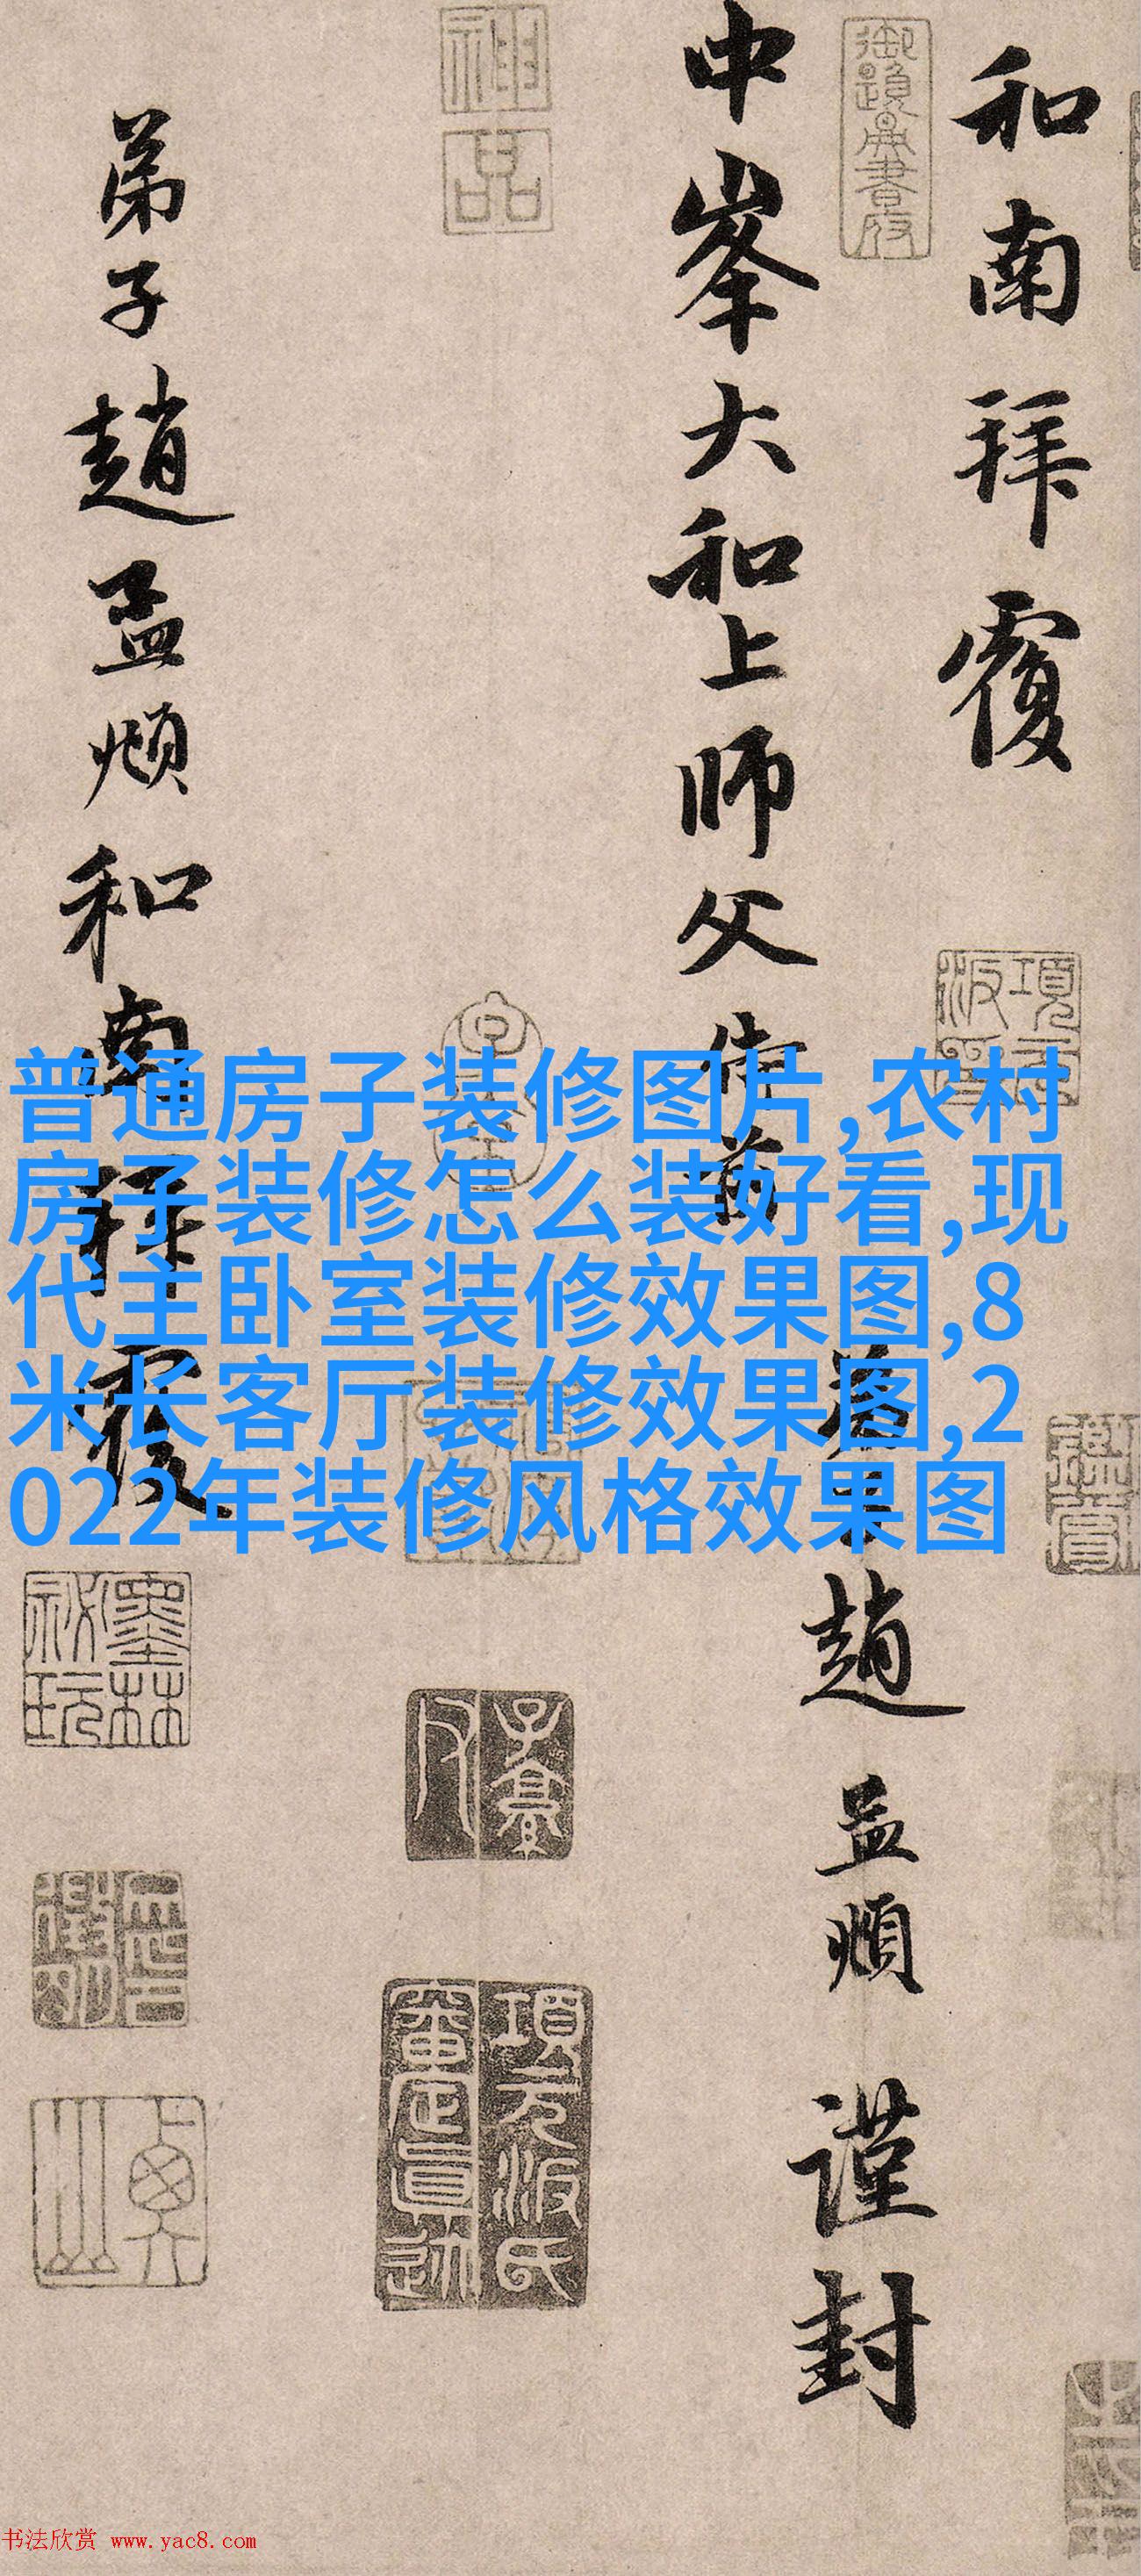 和南拜覆
中峯大和上師父侍前
趙孟頫謹封
弟子趙孟頫和南拜覆
神品
御題無書夜
墨林秘玩
子孫
項元汴氏審定真迹
普通房子装修图片,农村
房子装修怎么装好看,现
代主卧室装修效果图,8
米长客厅装修效果图,2
022年装修风格效果图
书法欣赏 www.yac8.com